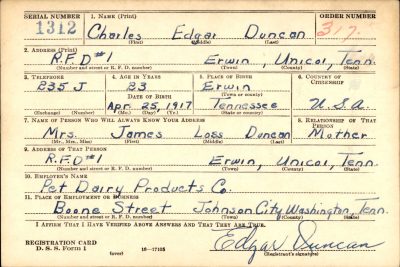 SERIAL NUMBER 1. NAME (Print) ORDER NUMBER
1312 Charles Edgar Duncan 317.
(First) (Middle) (Last)
2. ADDRESS (Print)
R.F.D #1 Erwin, Unicoi, Tenn.
(Number and street or R. F. D. number) (Town) (County) (State)
3. TELEPHONE 4. AGE IN YEARS 5. PLACE OF BIRTH 6. COUNTRY OF CITIZENSHIP
235 J 23 Erwin
DATE OF BIRTH (Town or county)
Apr. 25, 1917 Tennessee U.S.A.
(Exchange) (Number) (Mo.) (Day) (Yr.) (State or country)
7. NAME OF PERSON WHO WILL ALWAYS KNOW YOUR ADDRESS 8. RELATIONSHIP OF THAT PERSON
Mrs. James Loss Duncan Mother
(Mr., Mrs., Miss) (First) (Middle) (Last)
9. ADDRESS OF THAT PERSON
R.F.D #1 Erwin, Unicoi, Tenn.
(Number and street or R. F. D. number) (Town) (County) (State)
10. EMPLOYER'S NAME
Pet Dairy Products Co.
11. PLACE OF EMPLOYMENT OR BUSINESS
Boone Street Johnson City, Washington, Tenn.
(Number and street or R. F. D. number) (Town) (County) (State)
I AFFIRM THAT I HAVE VERIFIED ABOVE ANSWERS AND THAT THEY ARE TRUE.
Edgar Duncan
REGISTRATION CARD
D. S. S. Form 1 (over) 16—17105 (Registrant's signature)